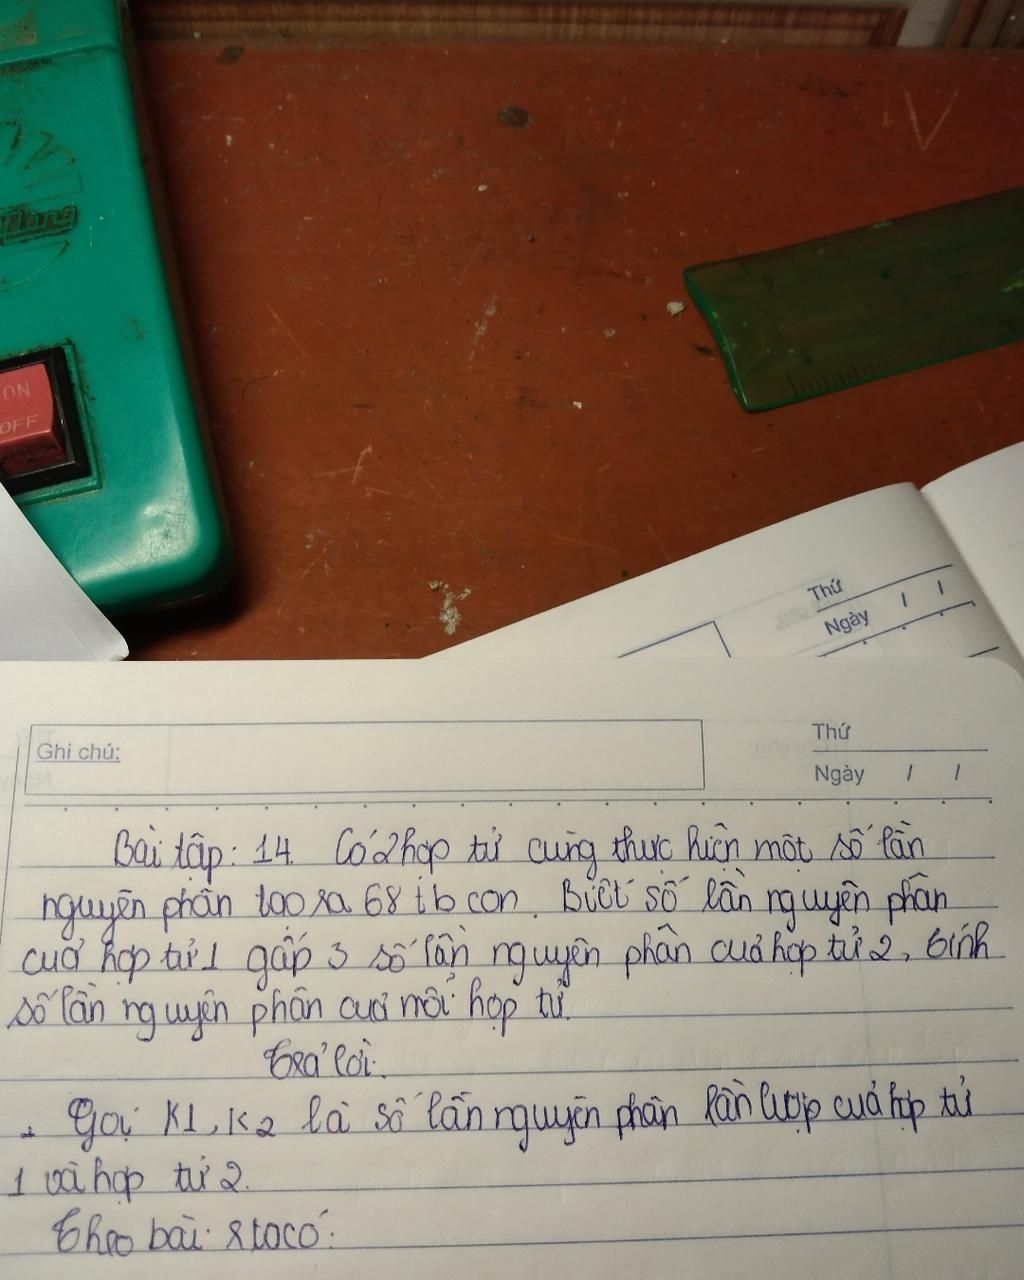 ON
OFF
Thứ
Ngày / /
Ghi chú:
Thứ
Ngày / /
Bài tập: 14. Có 2 hợp tử cùng thực hiện một số lần
nguyên phân tạo ra 68 tb con. Biết số lần nguyên phân
cuả hợp tử 1 gấp 3 số lần nguyên phân cuả hợp tử 2, tính
số lần nguyên phân cuả mỗi hợp tử.
Trả lời:
Gọi K1, K2 là số lần nguyên phân lần lượp cuả hợp tử
1 và hợp tử 2.
Theo bài ta có: